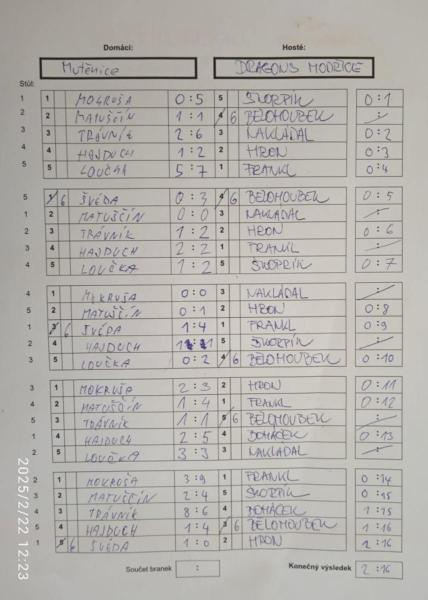 Domácí: Hosté:
Mutěnice DRAGONS MODŘICE
Stůl:
1 1 MOKRUŠA 0:5 5 ŠKORPÍK 0:1
2 2 MATUŠČÍN 1:1 4 6 BĚLOHOUBEK :
3 3 TRÁVNÍK 2:6 3 NAKLÁDAL 0:2
4 4 HAJDUCH 1:2 2 HRON 0:3
5 5 LOUČKA 5:7 1 FRANKL 0:4
5 1 6 ŠVÉDA 0:3 4 6 BĚLOHOUBEK 0:5
1 2 MATUŠČÍN 0:0 3 NAKLÁDAL :
2 3 TRÁVNÍK 1:2 2 HRON 0:6
3 4 HAJDUCH 2:2 1 FRANKL :
4 5 LOUČKA 1:2 5 ŠKORPÍK 0:7
4 1 MOKRUŠA 0:0 3 NAKLÁDAL :
5 2 MATUŠČÍN 0:1 2 HRON 0:8
1 3 6 ŠVÉDA 1:4 1 FRANKL 0:9
2 4 HAJDUCH 1:1 5 ŠKORPÍK :
3 5 LOUČKA 0:2 4 6 BĚLOHOUBEK 0:10
3 1 MOKRUŠA 2:3 2 HRON 0:11
4 2 MATUŠČÍN 1:4 1 FRANKL 0:12
5 3 TRÁVNÍK 1:1 5 6 BĚLOHOUBEK :
1 4 HAJDUCH 2:5 4 BOHÁČEK 0:13
2 5 LOUČKA 3:3 3 NAKLÁDAL :
2 1 MOKRUŠA 3:9 1 FRANKL 0:14
3 2 MATUŠČÍN 2:4 5 ŠKORPÍK 0:15
4 3 TRÁVNÍK 8:6 4 BOHÁČEK 1:15
5 4 HAJDUCH 1:4 3 6 BĚLOHOUBEK 1:16
1 5 6 ŠVÉDA 1:0 2 HRON 2:16
Součet branek : Konečný výsledek 2:16
2025/2/22 12:23